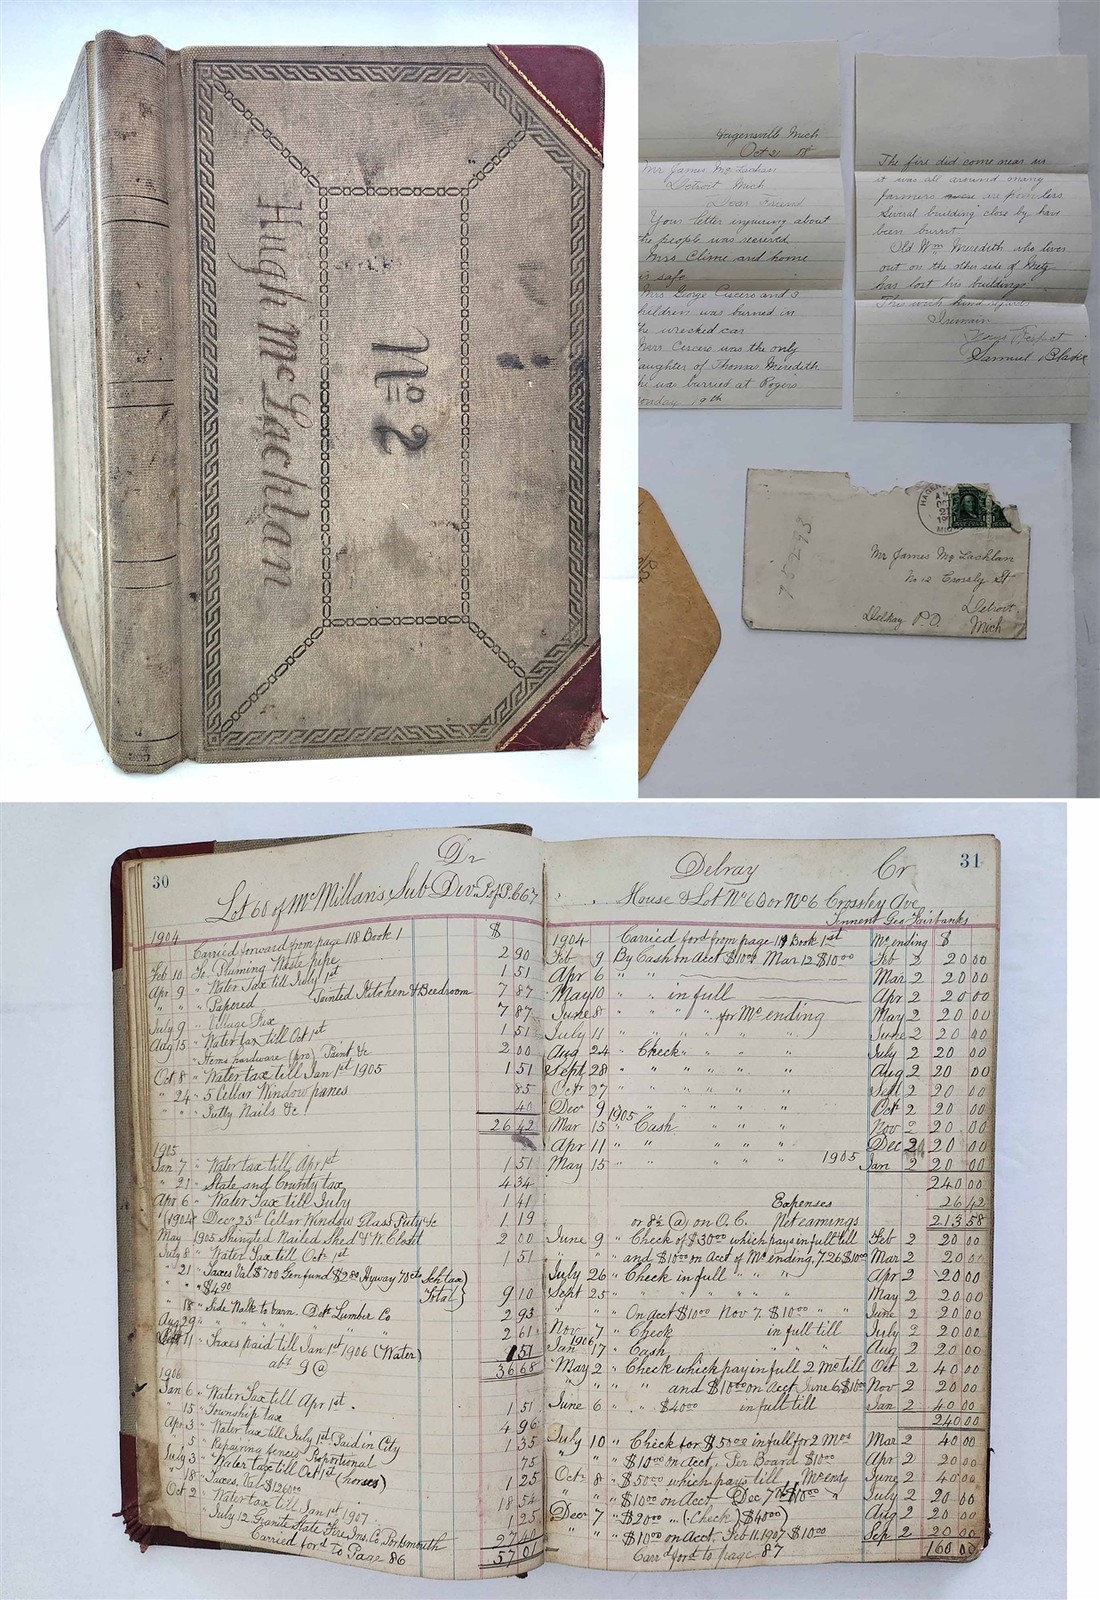 Hugh McLachlan
No 2
Hagensville Mich
Oct 21 08
Mr James McLachan
Detroit Mich
Dear Friend
Your letter inquiring about
the people was received
Mrs Clime and home
is safe
Mrs George Cicero and 3
children was burned in
the wrecked car
Mrs Ciscero was the only
daughter of Thomas Meredith
was burried at Rogers
19th
The fire did come near us
it was all around many
farmers are homeless
Several building close by have
been burnt
Old Wm Meredith who lives
out on the other side of Metz
has lost his buildings
This with kind regards
I remain
Samuel Blake
Mr James McLachlan
No 12 Crossly St
Detroit,
Delray P.O
Mich
75293
30
Dr
Lot 60 of McMillan's Sub Devn P of P. 667
$
1904
Carried forward from page 118 Book 1
Feb 10 To Pluming Waste pipe 2 90
Apr 9 " Water Tax till July 1st 1 51
" " " Papered Painted Kitchen & Bedroom 7 87
July 9 " Village Tax 7 87
Aug 15 " Water tax till Oct 1st 1 51
" Items hardware (pro) Paint &c 2 00
Oct 8 " Water tax till Jan 1st 1905 1 51
" 24 " 5 Cellar Window panes 85
" " " Putty Nails &c 40
26 42
1905
Jan 7 " Water tax till Apr 1st 1 51
" 21 " State and County tax 4 34
Apr 6 " Water Tax till July 1 41
(1904) Dec 23d Cellar Window Glass Puty &c 1 19
May 1905 Shingled Nailed Shed & W Closet 2 00
July 8 " Water Tax till Oct 1st 1 51
" 21 " Taxes Val $700 Gen fund $2.80 Hyway 70cts Sch tax
" " " $4.90 Total 9 10
" 18 " Side Walk to barn. Lumber Co 2 93
Aug 29 " " " " " 2 61
11 " Taxes paid till Jan 1st 1906 (Water) 1 51
at 9 @ 36 68
1906
Jan 6 " Water Tax till Apr 1st 1 51
" 15 " Township tax 4 96
Apr 3 " Water tax till July 1st Paid in City 1 35
" 5 " Repairing fences Proportional 75
July 3 " Water tax till Oct 1st (horses) 1 25
" 18 " Taxes, Val $1260.00 18 54
Oct 2 " Water tax till Jan 1st 1907 1 25
" July 12 Granite State Fire Ins. Co Portsmouth 27 40
Carried ford to Page 86 57 01
Delray Cr 31
House & Lot No 60 or No 6 Crossley Ave
Tennent Geo Fairbanks
1904 Carried ford from page 119 Book 1st Mo ending $
Feb 9 By Cash on Acct $10.00 Mar 12 $10.00 Feb 2 20 00
Apr 6 " " Mar 2 20 00
May 10 " " in full Apr 2 20 00
June 8 " " " " for Mo ending May 2 20 00
July 11 " " " " June 2 20 00
Aug 24 " Check " " " July 2 20 00
Sept 28 " " " " " Aug 2 20 00
Octr 27 " " " " " Sept 2 20 00
Dec 9 " " " " " Oct 2 20 00
1905
Mar 15 " Cash " " " Nov 2 20 00
Apr 11 " " " " " Dec 2 20 00
May 15 " " " " " 1905 Jan 2 20 00
240 00
Expenses 26 42
or 8½ @ on O.C. Net earnings 213 58
June 9 " Check of $30.00 which pays in full till Feb 2 20 00
" " " and $10.00 on Acct of Mo ending, 7.26 $10.00 Mar 2 20 00
July 26 " Check in full " " " Apr 2 20 00
Sept 25 " " " " May 2 20 00
" " " On Acct $10.00 Nov 7. $10.00 " " June 2 20 00
Nov 7 " Check in full till July 2 20 00
1906
Jan 17 " Cash " " " Aug 2 20 00
May 2 " Check which pay in full 2 Mo till Oct 2 40 00
" " " " and $10.00 on Acct June 6, $10.00 Nov 2 20 00
June 6 " " $40.00 in full till Jan 2 40 00
240 00
July 10 " Check for $50.00 in full for 2 Mos Mar 2 40 00
" " $10.00 on Acct, Per Board $10.00 Apr 2 20 00
Octr 8 " $50.00 which pays till Mo endg June 2 40 00
" " " $10.00 on Acct, Dec 7th $10.00 " July 2 20 00
Decr 7 " $20.00 " (Check) $40.00) Aug 2 20 00
" " $10.00 on Acct. Feb 11. 1907 $10.00 Sep 2 20 00
Carrd ford to page 87 160 00